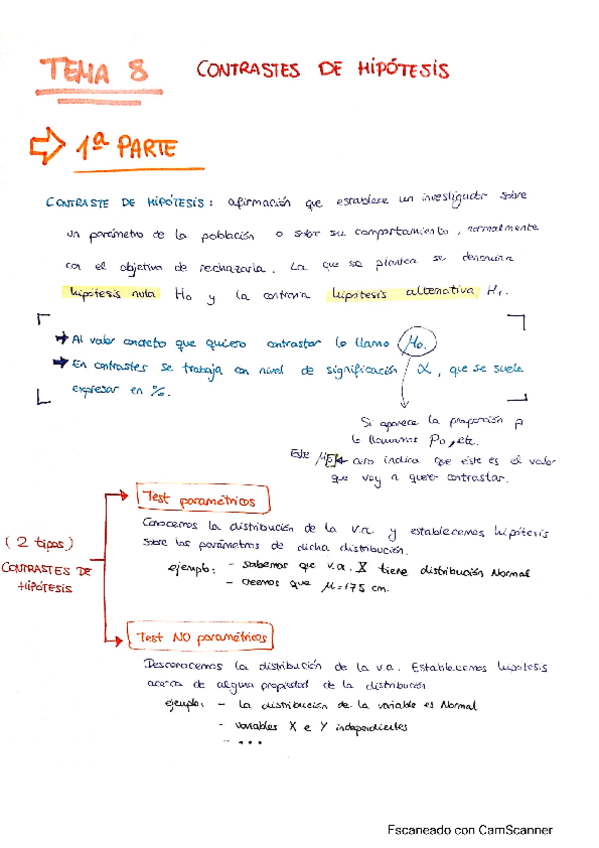 TEMA 8 CONTRASTES DE HIPÓTESIS
1ª PARTE
CONTRASTE DE HIPÓTESIS: afirmación que establece un investigador sobre
un parámetro de la población o sobre su comportamiento, normalmente
con el objetivo de rechazarla. La que se plantea se denomina
hipótesis nula H₀ y la contraria hipótesis alternativa H₁.
Al valor concreto que quiero contrastar lo llamo μ₀.
En contrastes se trabaja con nivel de significación α, que se suele
expresar en %.
Si aparece la proporción p
lo llamamos P₀, etc.
Este cero indica que este es el valor
que voy a querer contrastar.
Test paramétricos
Conocemos la distribución de la v.a. y establecemos hipótesis
sobre los parámetros de dicha distribución.
ejemplo: - sabemos que v.a. X tiene distribución Normal
- creemos que μ=175 cm.
(2 tipos)
CONTRASTES DE
HIPÓTESIS
Test NO paramétricos
Desconocemos la distribución de la v.a. Establecemos hipótesis
acerca de alguna propiedad de la distribución.
ejemplo: - la distribución de la variable es Normal
- variables X e Y independientes
- ...
Escaneado con CamScanner